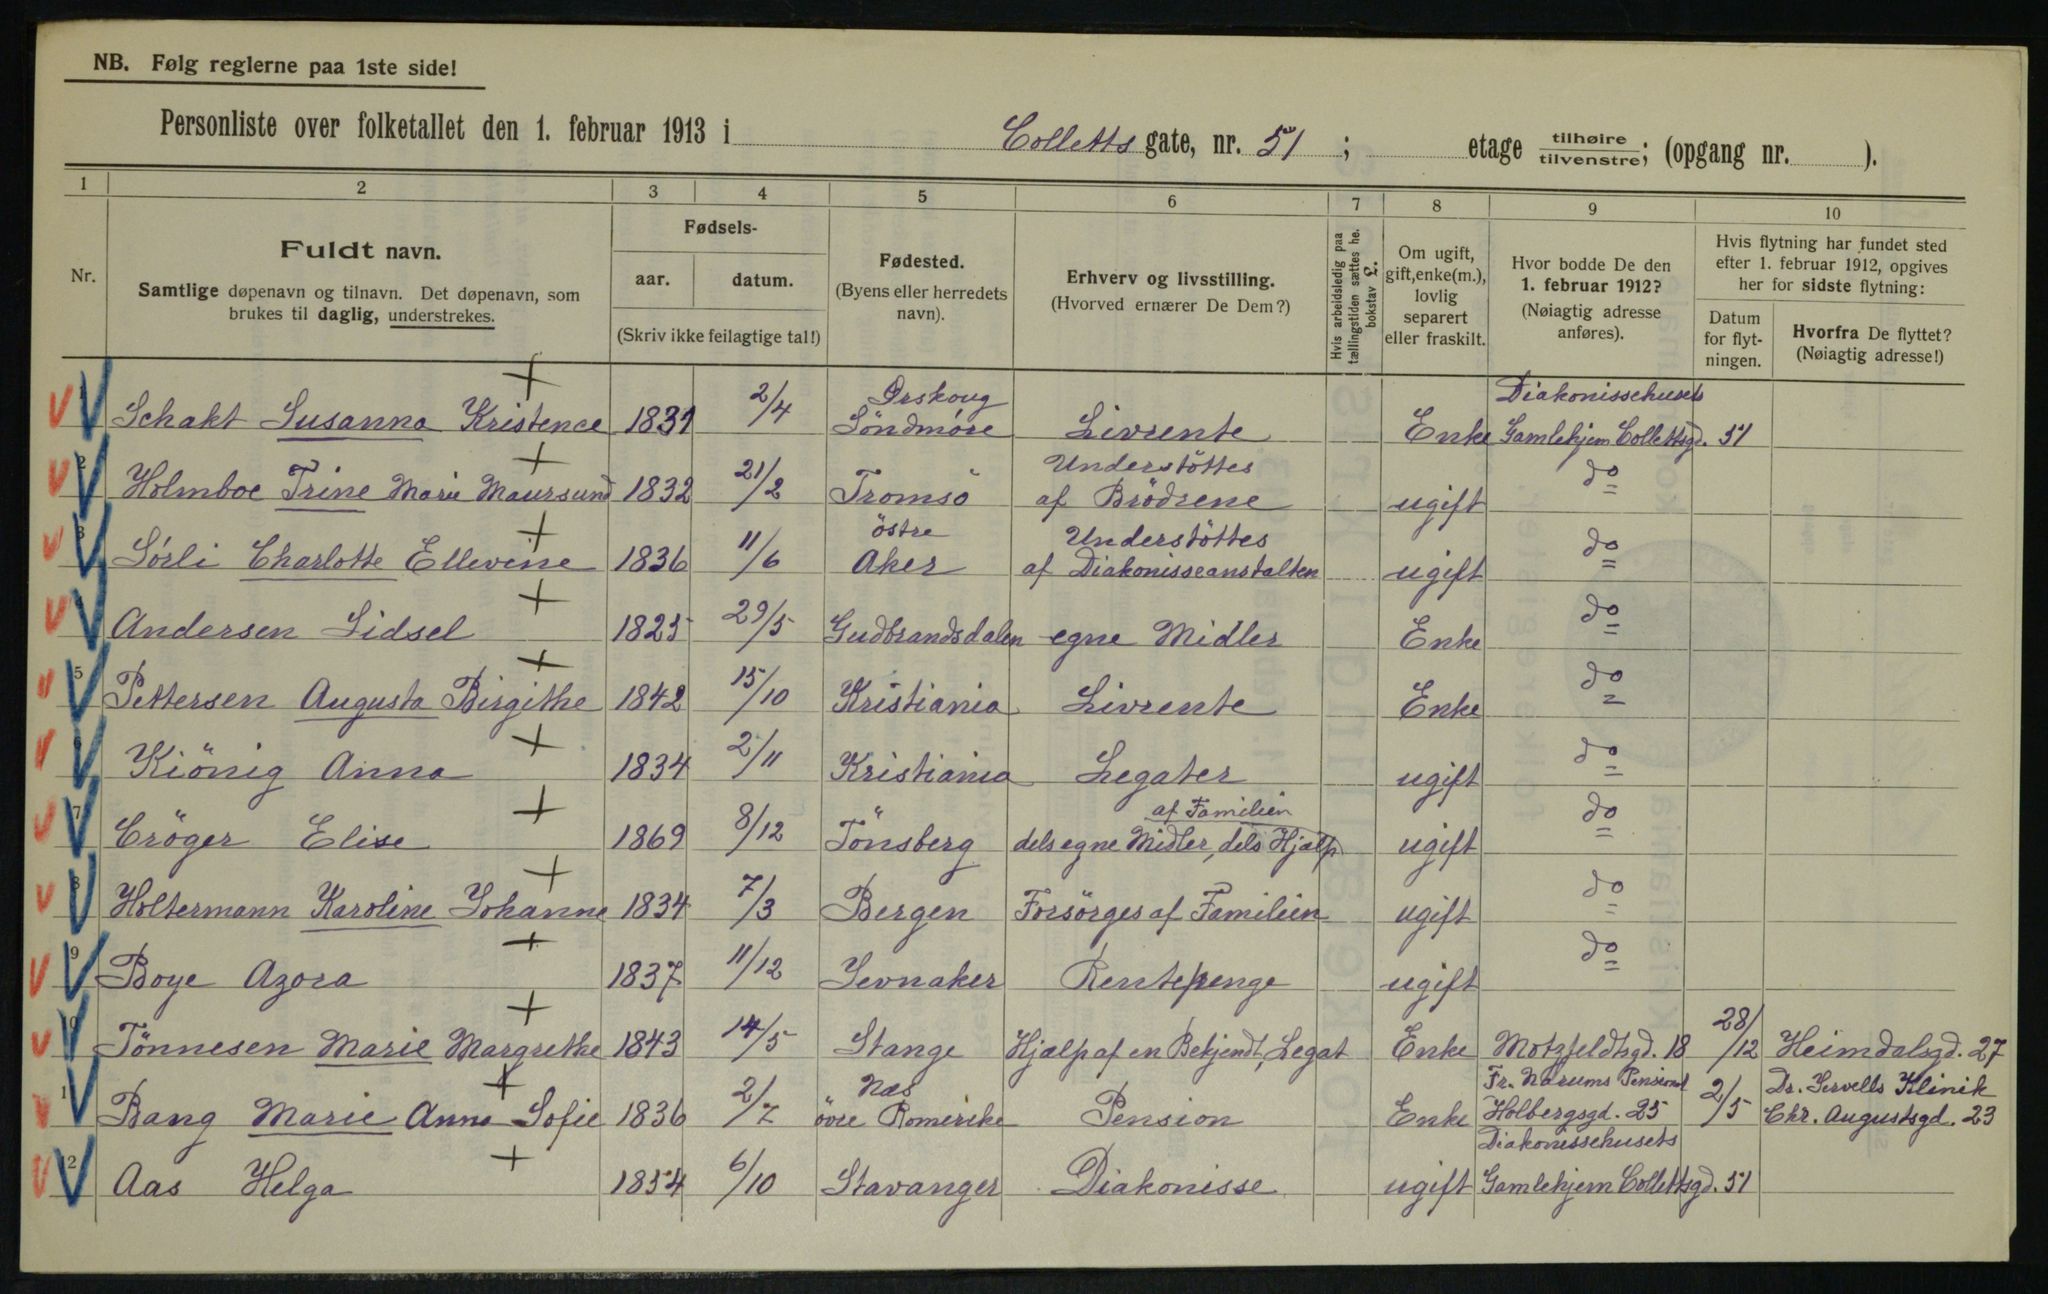 NB. Følg reglerne paa 1ste side!
Personliste over folketallet den 1. februar 1913 i Colletts gate, nr. 51; etage tilhøire / tilvenstre; (opgang nr. ).
1 2 3 4 5 6 7 8 9 10
Nr.
Fuldt navn.
Samtlige døpenavn og tilnavn. Det døpenavn, som
brukes til daglig, understrekes.
Fødsels-
aar. datum.
(Skriv ikke feilagtige tal!)
Fødested.
(Byens eller herredets
navn).
Erhverv og livsstilling.
(Hvorved ernærer De Dem?)
Hvis arbeidsledig paa
tællingstiden sættes he.
bokstav £.
Om ugift,
gift, enke(m.),
lovlig
separert
eller fraskilt.
Hvor bodde De den
1. februar 1912?
(Nøiagtig adresse
anføres).
Hvis flytning har fundet sted
efter 1. februar 1912, opgives
her for sidste flytning:
Datum
for flyt-
ningen.
Hvorfra De flyttet?
(Nøiagtig adresse!)
1 Schakt Susanna Kristence 1831 2/4 Ørskoug Söndmöre Livrente Enke Diakonissehusets Gamlehjem Collettsgd. 51
2 Holmboe Trine Marie Maursund 1832 21/2 Tromsö Understöttes af Brödrene ugift do
3 Sörli Charlotte Ellevine 1836 11/6 östre Aker Understöttes af Diakonisseanstalten ugift do
Andersen Sidsel 1825 29/5 Gudbrandsdalen egne Midler Enke do
5 Pettersen Augusta Birgithe 1842 15/10 Kristiania Livrente Enke do
6 Kiönig Anna 1834 2/11 Kristiania Legater ugift do
7 Cröger Elise 1869 8/12 Tönsberg dels egne Midler, dels Hjælp af Familien ugift do
8 Holtermann Karoline Johanne 1834 7/3 Bergen Forsörges af Familien ugift do
9 Boye Azora 1837 11/12 Jevnaker Rentepenge ugift do
10 Tönnesen Marie Margrethe 1843 14/5 Stange Hjælp af en Bekjendt, Legat Enke Motzfeldtsgd. 18 28/12 Heimdalsgd. 27
11 Bang Marie Anna Sofie 1836 2/7 Næs övre Romerike Pension Enke Fr. Narums Pensionat Holbergsgd. 25 2/5 Dr. Jervells Klinik Chr. Augustsgd. 23
12 Aas Helga 1854 6/10 Stavanger Diakonisse ugift Diakonissehusets Gamlehjem Collettsgd. 51